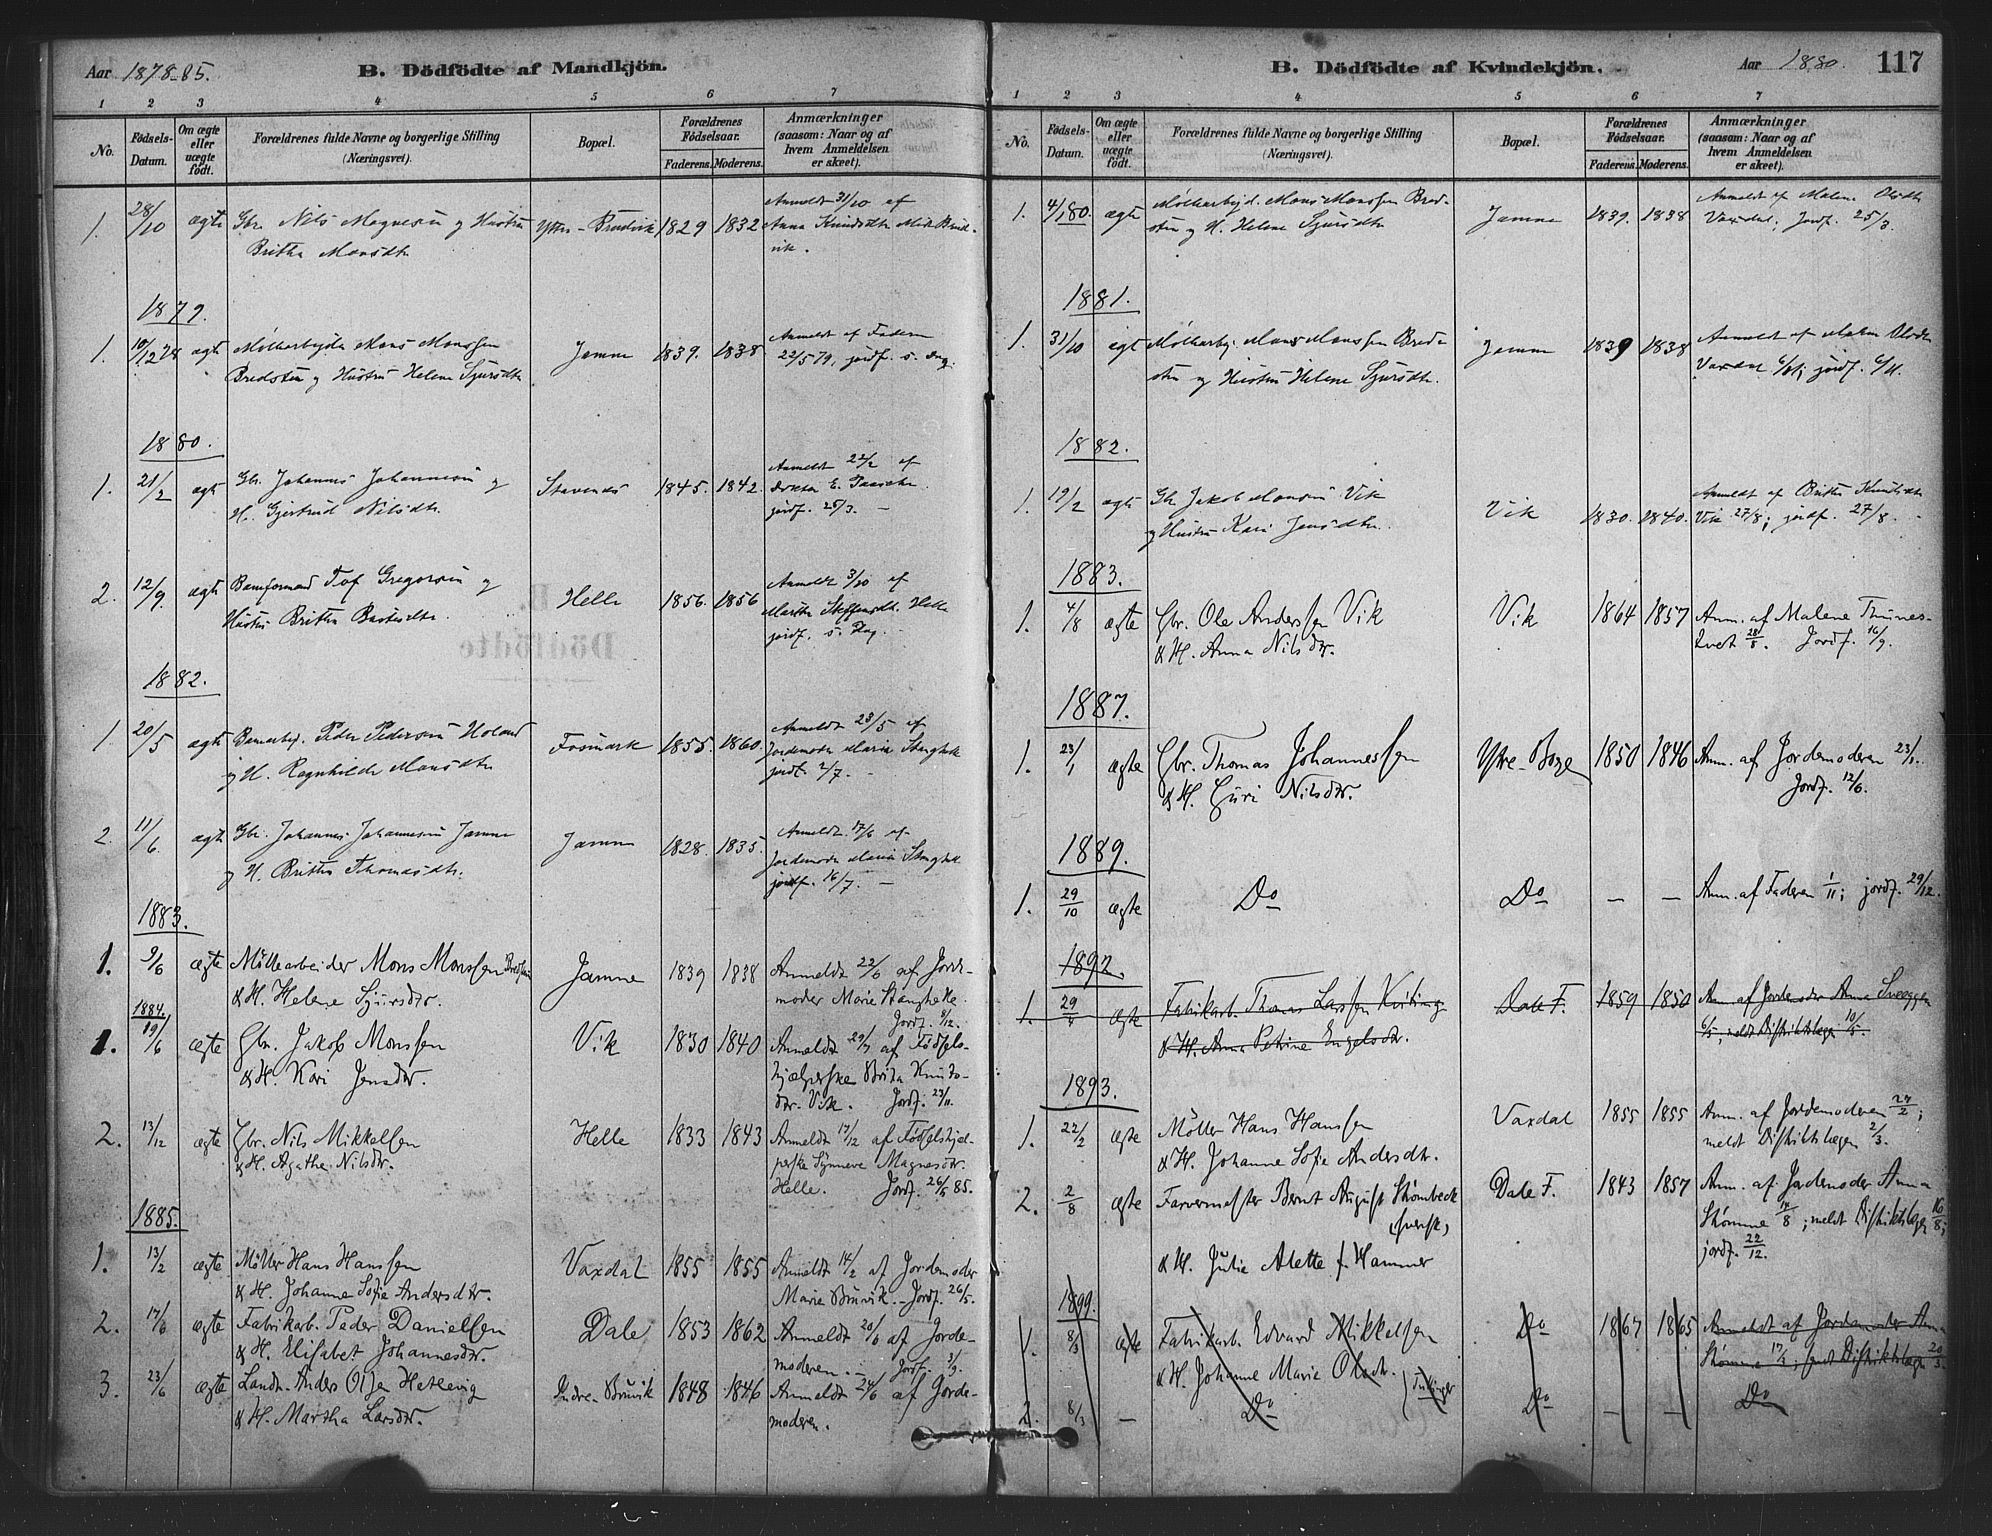 Aar 1878-85.
B. Dödfödte af Mandkjön.
1 2 3 4 5 6 7
No.
Fødsels-Datum.
Om ægte eller uægte født.
Forældrenes fulde Navne og borgerlige Stilling
(Næringsvei).
Bopæl.
Forældrenes Fødselsaar.
Faderens. Moderens.
Anmærkninger
(saasom: Naar og af
hvem Anmeldelsen
er skeet).
1. 28/10 ægte Gbr. Nils Magnesen og Hustru Ytre-Bruvik 1829 1832 Anmeldt 31/10 af
Britha Monsdtr Anna Knudsdtr
vik.
1879.
1. 10/12 78 ægte Møllearbeider Mons Monssen Jamne 1839. 1838 Anmeldt af Faderen
Bredsten og Hustru Helene Sjursdtr 22/5 79, jordf. s. Dag.
1880.
1. 21/2 ægte Gbr. Johannes Johannessen og Stavenes 1845. 1842. Anmeldt 22/2 af
H. Gjertrud Nilsdtr. jordf. 25/3. -
2. 12/9. ægte Toj Gregorsen og Helle 1856. 1856 Anmeldt 3/10 af
Hustru Britha Martha Steffensdtr. Helle
jordf. s. Dag. -
1882.
1 20/5 ægte Banearbei. Peder Pedersen Holand Fosmark 1855. 1860. Anmeldt 23/5 af
og H. Ragnhilde Monsdtr Jordemoder Maria Stanghele
jordf. 2/7. -
2. 11/6 ægte Gbr. Johannes Johannessen Jamne Jamne 1828. 1835. Anmeldt 17/6 af
og H. Britha Thomasdtr. Jordemoder Maria Stanghele
jordf. 16/7. -
1883.
1. 9/6 ægte Möllearbeider Mons Monssen Bredsten Jamne 1839 1838 Anmeldt 22/6 af Jorde-
& H. Helene Sjursdtr. moder Marie Stanghele.
Jordf. 8/12.
1884.
1. 19/6 ægte Gbr. Jakob Monssen Vik 1830 1840 Anmeldt 29/7 af Födsels-
& H. Kari Jensdtr. hjælperske Brita Knuts-
dtr. Vik. Jordf. 23/11.
2. 13/12 ægte Gbr. Nils Mikkelsen Helle 1833 1843 Anmeldt 17/12 af Födselshjel-
& H. Agathe Nilsdtr. perske Synneve Magnesdtr.
Helle. Jordf. 26/5 85.
1885.
1. 13/2 ægte Möller Hans Hanssen Vaxdal 1855 1855 Anmeldt 14/2 af Jordemoder
& H. Johanne Sofie Andersdtr. Marie Bruvik. - Jordf. 26/5.
2. 17/6 ægte Fabrikarb. Peder Danielsen Dale 1853 1862 Anmeldt 20/6 af Jorde-
& H. Elisabet Johannesdtr. moderen. - Jordf. 3/9.
3. 23/6 ægte Landh. Anders Olsen Hetlevig Indre-Bruvik 1848 1846 Anmeldt 24/6 af Jorde-
& H. Martha Larsdtr. moderen.
B. Dödfödte af Kvindekjön.
Aar 1880.
117
1 2 3 4 5 6 7
No.
Fødsels-Datum.
Om ægte eller uægte født.
Forældrenes fulde Navne og borgerlige Stilling
(Næringsvei).
Bopæl.
Forældrenes Fødselsaar.
Faderens. Moderens.
Anmærkninger
(saasom: Naar og af
hvem Anmeldelsen
er skeet).
1. 4/1 80. ægte Møllearbeid. Mons Monssen Bred- Jamne 1839. 1838 Anmeldt af Malene Olsdtr
sten og H. Helene Sjursdtr Vaxdal; Jordf. 25/3.
1881.
1. 31/10 ægte Møllearby. Mons Monssen Bred- Jamne 1839 1838 Anmeldt af Malene Olsdtr
sten og Hustru Helene Sjursdtr. Vaxdal 6/11; jordf. 6/11.
1882.
1. 19/2 ægte Gbr. Jakob Monsen Vik Vik 1830. 1840. Anmeldt af Britha Knutsdtr
og Hustru Kari Jensdtr. Vik 27/8; jordf. 27/8.
1883.
1. 4/8 ægte Gbr. Ole Anderssen Vik Vik 1864 1857 Anm. af Malene Thunes-
& H. Anna Nilsdtr. tvet 28/8. Jordf. 16/9.
1887.
1. 23/1 ægte Gbr. Thomas Johannessen Ytre-Borge 1850 1846 Anm. af Jordemoderen 23/1.
& H. Guri Nilsdtr. Jordf. 12/6.
1889.
1. 29/10 ægte Do Do - - Anm. af Faderen 1/11; jordf. 29/12.
1892.
1. 29/4 ægte Fabrikarb. Thomas Larssen Kvitinge Dale F. 1859 1850 Anm. af Jordemoder Anna
& H. Anna Petrine Engelsdtr. 6/5, meldt Distriktslægen 10/5.
1893.
1. 22/2 ægte Möller Hans Hanssen Vaxdal 1855 1855 Anm. af Jordemoderen 27/2;
& H. Johanne Sofie Andersdtr. meldt Distriktslægen 2/3.
2. 2/8 ægte Farvermester Bernt August Strömbeck Dale F. 1843 1857 Anm. af Jordemoder Anna
(svensk) Skömme 14/8; meldt Distriktslægen 16/8;
& H. Julie Alette f. Hammer jordf. 22/12.
1899.
1. 8/3 ægte Fabrikarb. Edvard Mikkelsen Do 1867 1865 Anmeldt af Jordemoder Anna
& H. Johanne Marie Olsdtr. Skömme 17/3, sendt Distriktslægen 20/3.
(Tvillinger)
2. 8/3 - Do Do - - Do